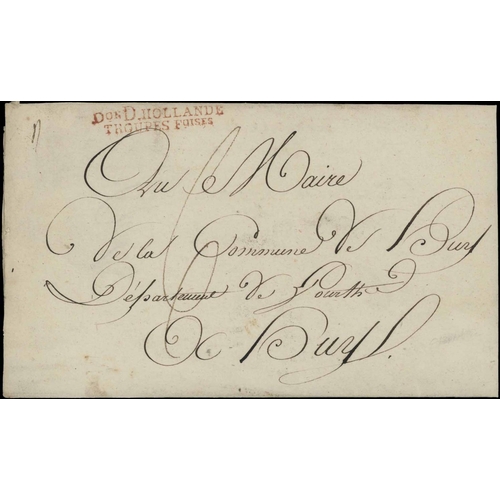 Don D. HOLLANDE
TROUPES FOISES
Au Maire
de la Commune de Huy
Département de Lourthe
A Huy